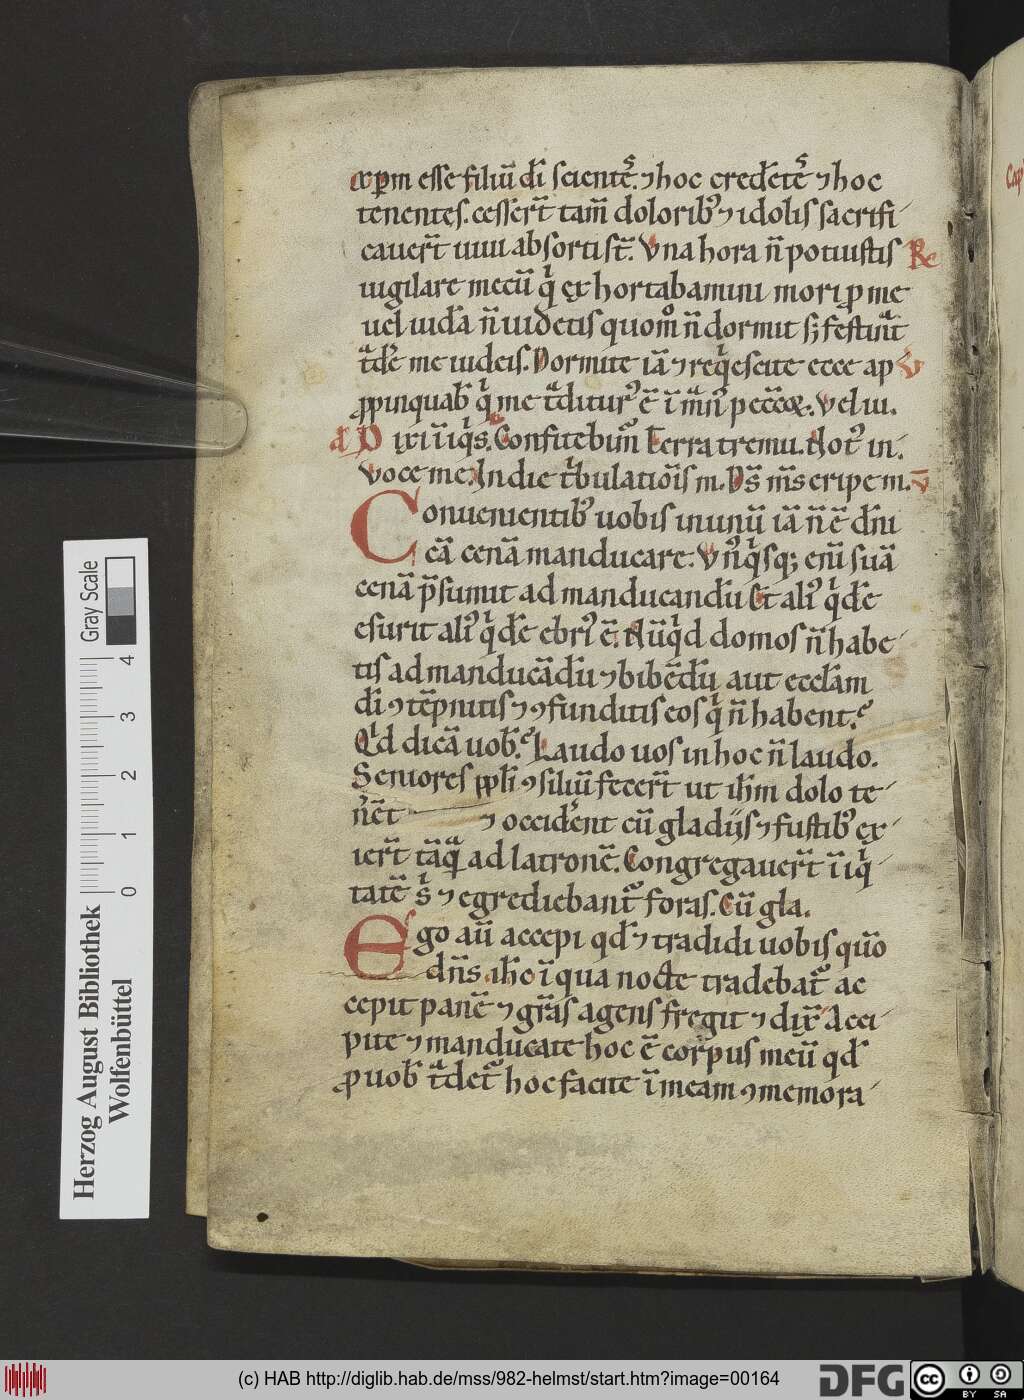 xpm esse filiū dī scientes. ⁊ hoc credētes ⁊ hoc
tenentes. cesser̄t tam̄ dolorib; ⁊ idolis sacrifi-
cauer̄t uiui absorti st̄. Vna hora n̄ potuistis Re
uigilare mecū q̇ exhortabamini mori ꝓ me
uel iudā n̄ uidetis quom̊ n̄ dormit sꝫ festinat
tͣdē me iudeis. Dormite iā ⁊ reqͥescite ecce ap V
ꝓpinquab̄ qͥ me tͣditur᷒ ē ī man᷒ peccōꝝ. Vel iu.
a Dixi īiqͥs. Confitebim̄ Terra tremu. Not᷒ in.
Voce me. In die tͥbulatiōis m. Ds̄ m̄s eripe m. V̄
Conuenientib; uobis in unū iā n̄ ē dn̄i
cā cenā manducare. Vn᷒qͥsq; enī suā
cenā p̄sumit ad manducandū Et ali᷒ qͥdē
esurit ali᷒ qͥdē ebri᷒ ē. Nūqͥd domos n̄ habe-
tis ad manducādū ⁊ bibēdū aut eccl̄am
dī ꝯtēpnitis ⁊ ꝯfunditis eos qͥ n̄ habent.
Qͥd dicā uob̄. Laudo uos in hoc n̄ laudo.
Seniores ppl̄i ꝯsiliū fecer̄t ut ih̄m dolo te-
ner̄ēt ⁊ occiderent cū gladijs ⁊ fustib; ex-
ier̄t tāqͣ ad latronē. Congregauer̄t īiqͥ-
tatē sͥ ⁊ egrediebant᷒ foras. Cū gla.
Ego aū accepi qd̄ ⁊ tradidi uobis quō
dn̄s ih̄c ī qua nocte tradebat᷒ ac
cepit panē ⁊ gr̄as agens fregit ⁊ dix̄ Acci-
pite ⁊ manducate hoc ē corpus meū qd̄
ꝓ uob̄ tͣdet᷒ hoc facite ī meam ꝯmemora-
Cap
Gray Scale
0 1 2 3 4
Herzog August Bibliothek
Wolfenbüttel
(c) HAB http://diglib.hab.de/mss/982-helmst/start.htm?image=00164
DFG
cc BY SA